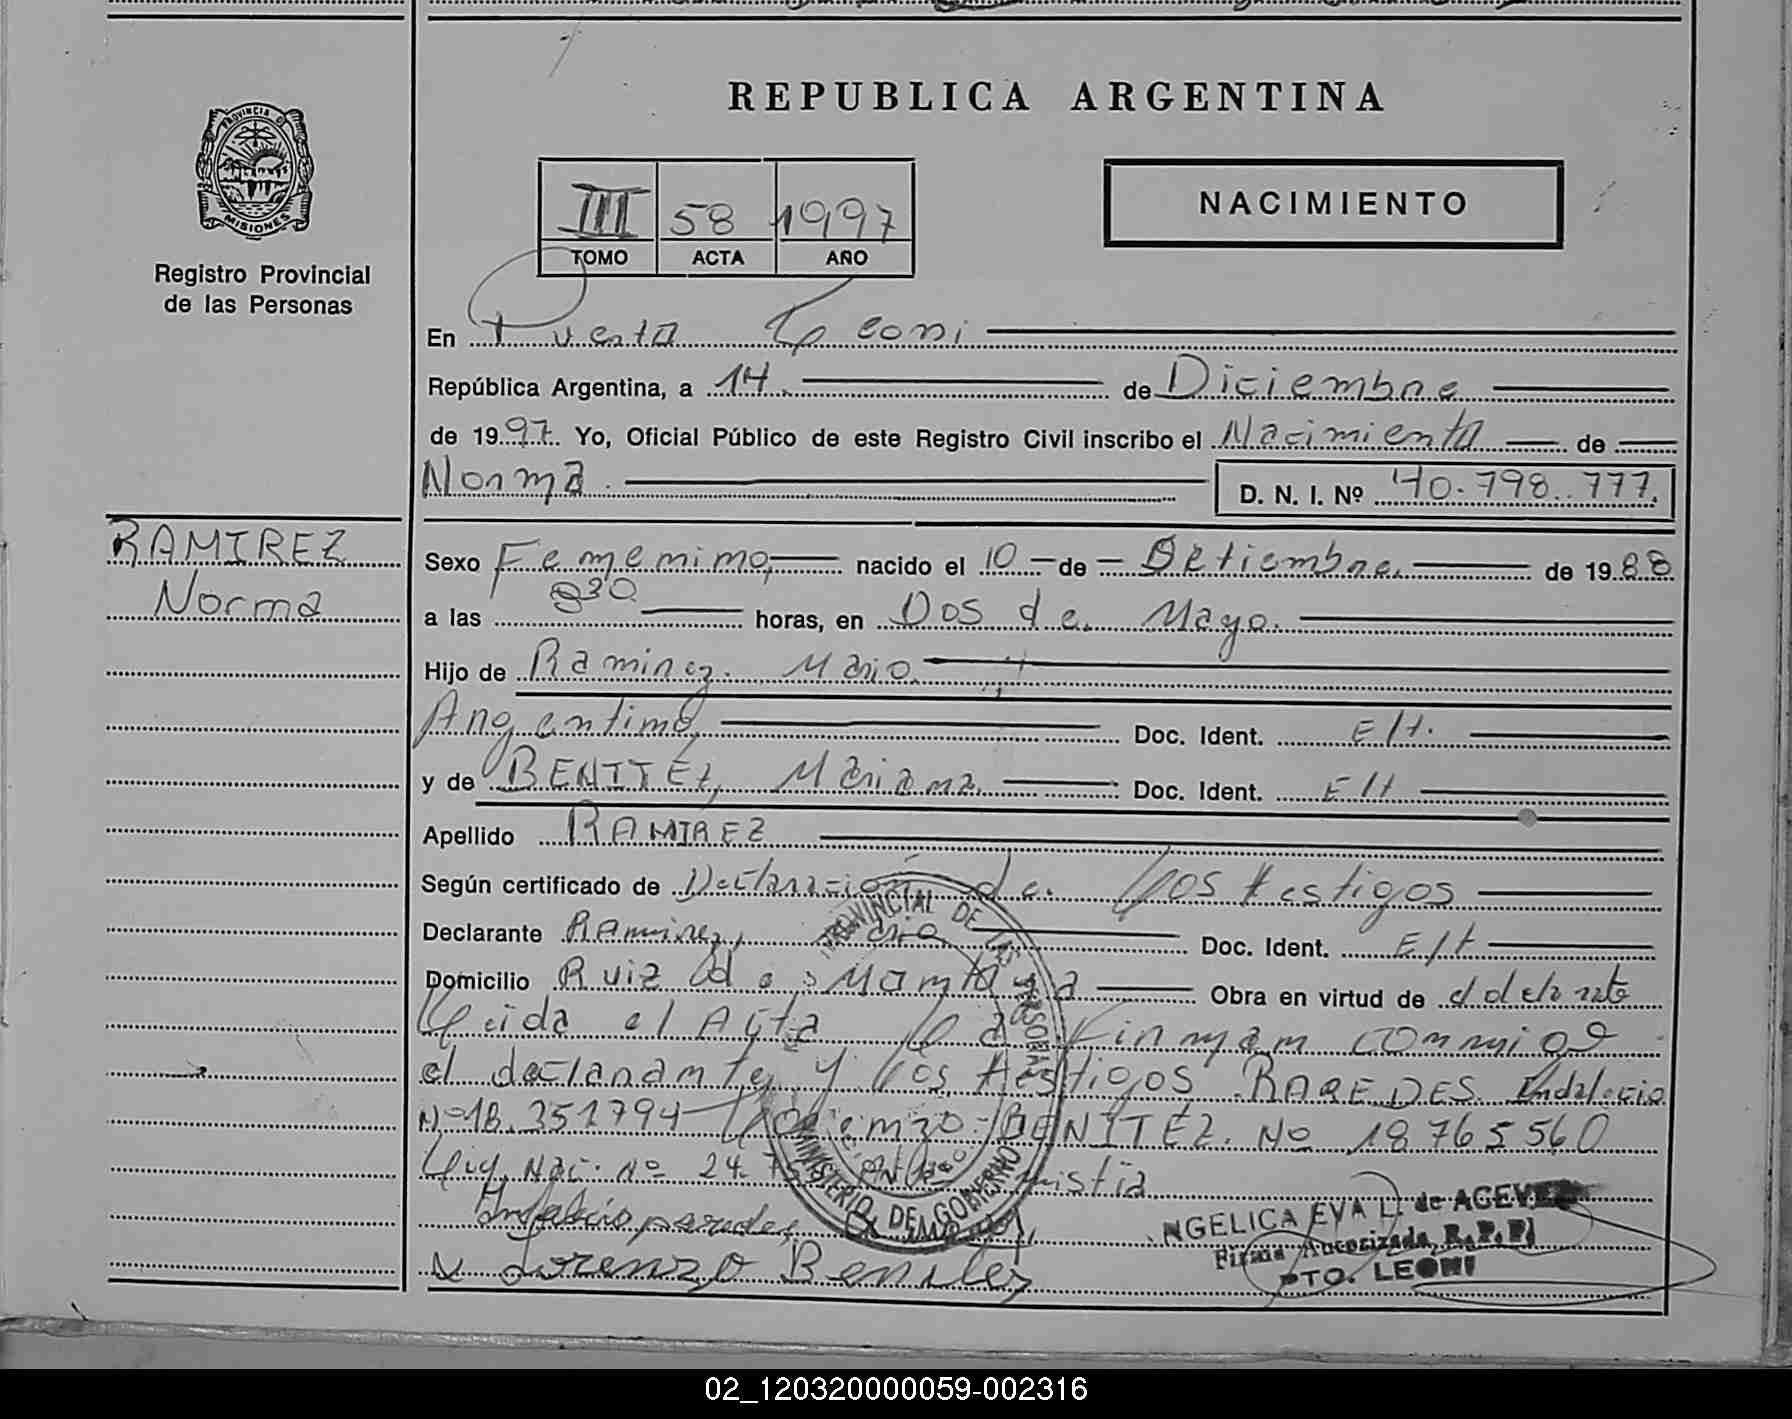 REPUBLICA ARGENTINA
PROVINCIA DE MISIONES
Registro Provincial
de las Personas
III 58 1997
TOMO ACTA AÑO
NACIMIENTO
En Puerto Leoni
República Argentina, a 14. de Diciembre
de 1997. Yo, Oficial Público de este Registro Civil inscribo el Nacimiento de
Norma. D. N. I. Nº 40.798.777.
RAMIREZ
Norma
Sexo Femenino, nacido el 10 de Setiembre. de 1988
a las 830 horas, en Dos de Mayo.
Hijo de Ramirez. Mario.
Argentino, Doc. Ident. E/t.
y de BENITEZ, Mariana. Doc. Ident. E/t
Apellido RAMIREZ
Según certificado de Declaración de Los testigos
Declarante Ramirez, Doc. Ident. E/t
Domicilio Ruiz de Montoya Obra en virtud de
Leida el Acta La Firman conmigo
el declarante y Los testigos PAREDES Indalecio
Nº 18.351794 Lorenzo BENITEZ. Nº 18765560
Lorenzo Benitez
PROVINCIAL DE LAS PERSONAS
MINISTERIO DE GOBIERNO
ANGELICA EVA L. de ACEVEDO
Firma Autorizada, R.P.P.
PTO. LEONI
02_120320000059-002316